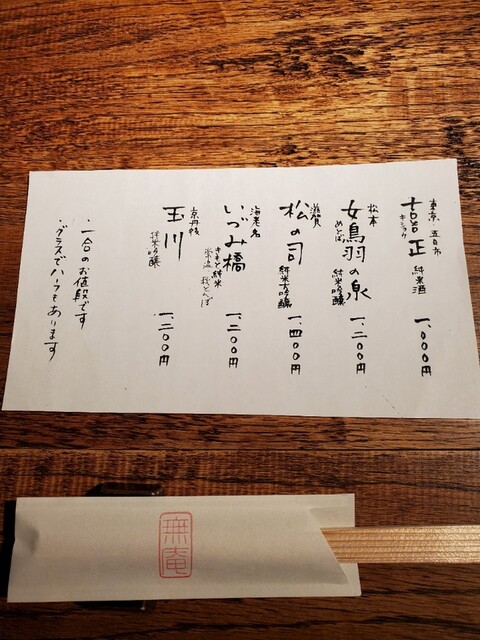 東京・五日市
喜正 純米酒 一、〇〇〇円
キショウ
松本
女鳥羽の泉 純米吟醸 一、二〇〇円
めとば
滋賀
松の司 純米大吟醸 一、四〇〇円
海老名
いづみ橋 一、二〇〇円
きもと純米
常温
京丹後
玉川 純米吟醸 一、二〇〇円
・一合のお値段です
・グラスでハーフもあります
無庵